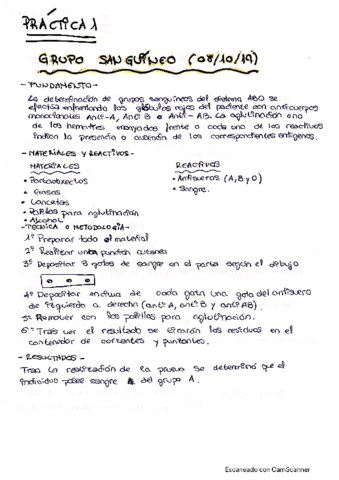 PRÁCTICA 1
GRUPO SANGUÍNEO (08/10/19)
- FUNDAMENTO -
La determinación de grupos sanguíneos del sistema ABO se
efectúa enfrentando los glóbulos rojos del paciente con anticuerpos
monoclonales Anti-A, Anti B o Anti-AB. La aglutinación o no
de los hematíes ensayados frente a cada uno de los reactivos
indica la presencia o ausencia de los correspondientes antígenos.
- MATERIALES Y REACTIVOS -
MATERIALES
• Portaobjetos
• Gasas
• Lancetas
• Palillos para aglutinación
• Alcohol
REACTIVOS
• Antisueros (A, B y 0)
• Sangre.
- TÉCNICA O METODOLOGÍA -
1º Preparar todo el material
2º Realizar una punción cutánea
3º Depositar 3 gotas de sangre en el porta según el dibujo
4º Depositar encima de cada gota una gota del antisuero
de izquierda a derecha (anti A, anti B y anti AB)
5º Remover con los palillos para aglutinación.
6º Tras ver el resultado se tirarán los residuos en el
contenedor de cortantes y punzantes.
- RESULTADOS -
Tras la realización de la prueba se determinó que el
individuo posee sangre del grupo A.
Escaneado con CamScanner